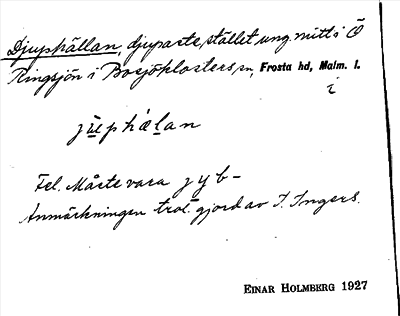 Djuphällan, djupaste stället ung. mitt i Ö
Ringsjön i Bosjöklosters sn, Frosta hd, Malm. l.
i
jụphæ̣lan
Fel. Måste vara j y b-
Anmärkningen trol. gjord av I. Ingers.
EINAR HOLMBERG 1927